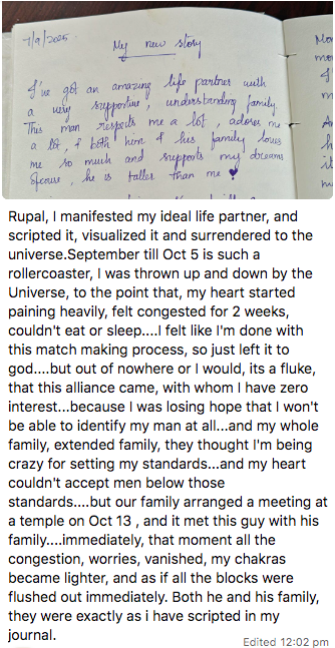 7/9/2025
My new story
I've got an amazing life partner with
a very supportive, understanding family
This man respects me a lot, adores me
a lot, & both him & his family loves
me so much and supports my dreams
Ofcourse, he is taller than me
Rupal, I manifested my ideal life partner, and
scripted it, visualized it and surrendered to the
universe.September till Oct 5 is such a
rollercoaster, I was thrown up and down by the
Universe, to the point that, my heart started
paining heavily, felt congested for 2 weeks,
couldn't eat or sleep....I felt like I'm done with
this match making process, so just left it to
god....but out of nowhere or I would, its a fluke,
that this alliance came, with whom I have zero
interest...because I was losing hope that I won't
be able to identify my man at all...and my whole
family, extended family, they thought I'm being
crazy for setting my standards...and my heart
couldn't accept men below those
standards....but our family arranged a meeting at
a temple on Oct 13 , and it met this guy with his
family....immediately, that moment all the
congestion, worries, vanished, my chakras
became lighter, and as if all the blocks were
flushed out immediately. Both he and his family,
they were exactly as i have scripted in my
journal.
Edited 12:02 pm